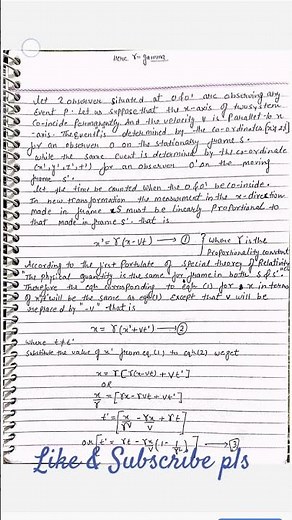 Here γ = gamma
Let 2 observer situated at O & O' are observing any
Event P. Let us suppose that the x-axis of two system
Co-incide permanently. And the velocity v is Parallel to x
-axis. The Event P is determined by the co-ordinates (x,y,z,t)
for an observer O on the stationary frame S.
while the same event is determined by the co-ordinate
(x',y',z',t') for an observer O' on the moving
frame S'.
Let the time be counted when the O & O' be co-inside.
In new transformation the measurement in the x-direction
made in frame S must be linearly Proportional to
that made in frame S'. that is
x' = γ(x-vt) → ① { where γ is the
Proportionality constant
According to the first Postulate of special theory of Relativity
"The Physical quantity is the same for frame in both S & S'.
Therefore the eqn corresponding to eqn (1) for x in terms
of x't' will be the same as eqn(1) Except that v will be
replaced by "-v" that is
x = γ(x'+vt') → ②
where t≠t'
Substitute the value of x' from eq.(1) to eqn(2) we get
x = γ[γ(x-vt) + vt']
OR
x/γ = [γx - γvt + vt']
t' = [x/γv - γx/v + γt]
OR [t' = γt - γx/v (1 - 1/γ2)] → ③
Like & Subscribe pls